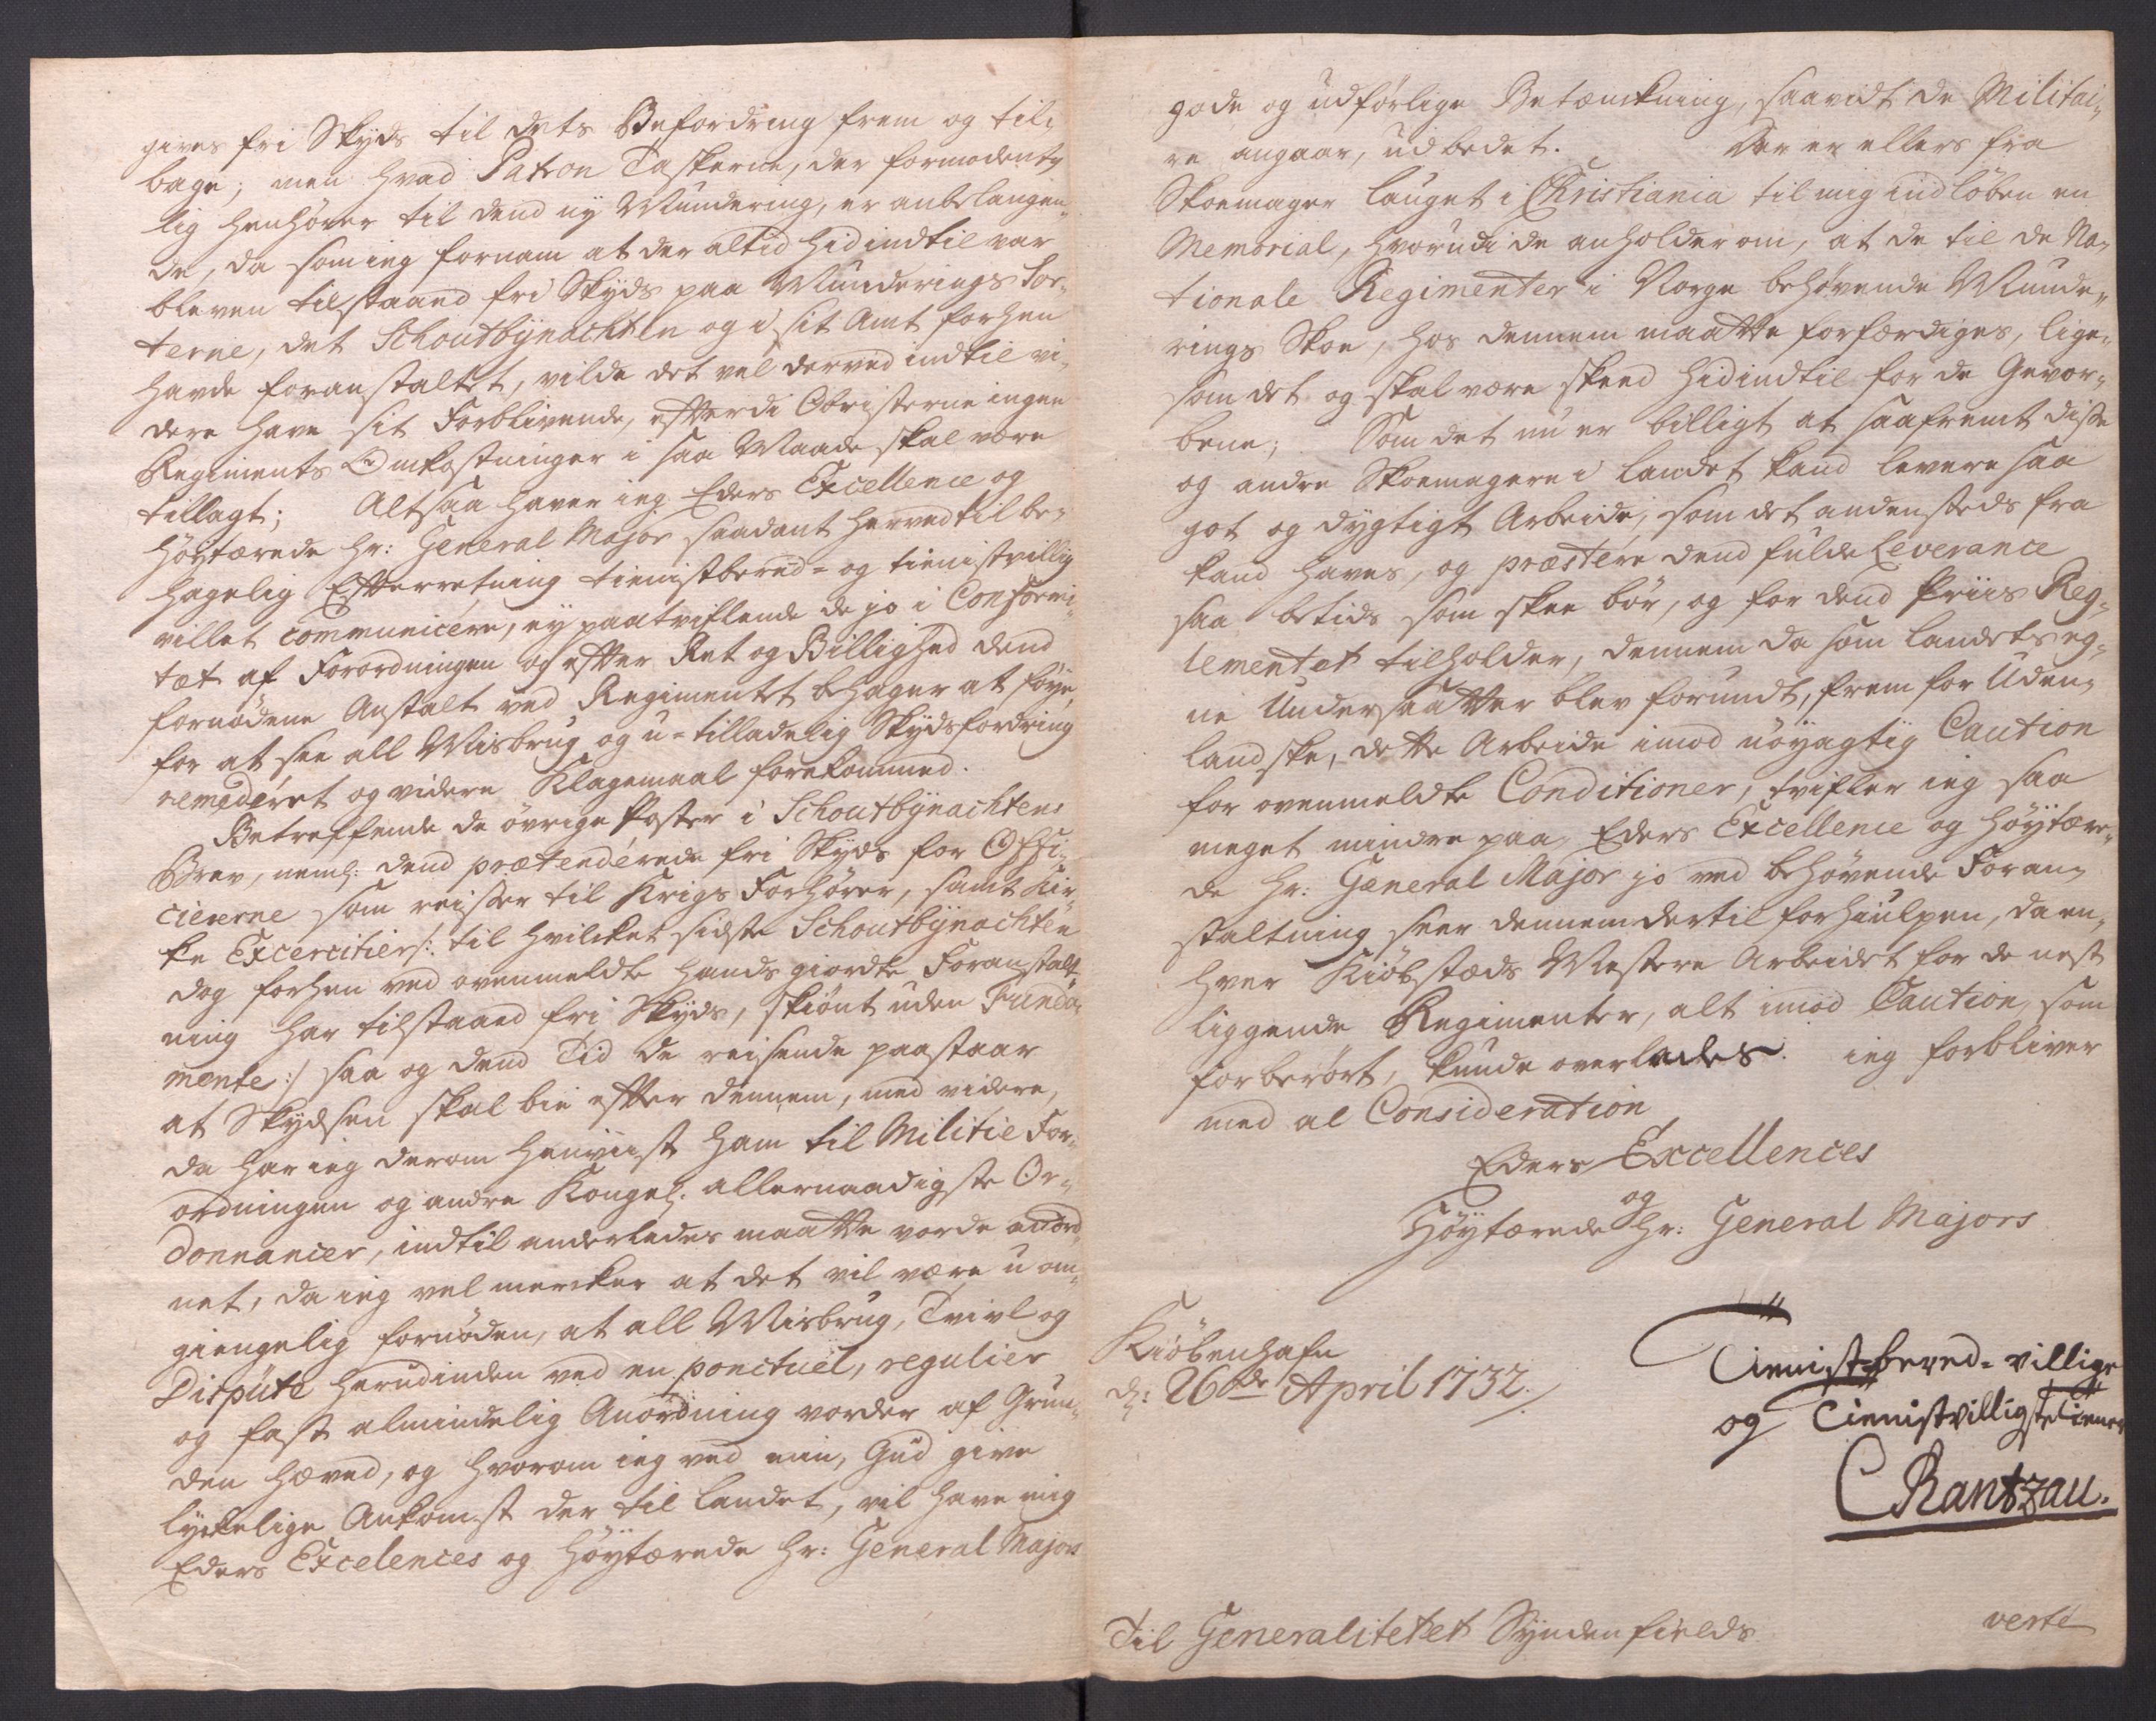 gives fri Skyds til dets Befordring frem og til,
bage; men hvad Patron Taskerne, der formodent,
lig henhører til dend ny Mundering, er anbelangen,
de, da som ieg fornam at der altid hidindtil var
bleven tilstaaed fri Skyds paa Munderings Sor,
terne, det Schoutbÿnachten og i sit Amt forhen
havde foranstaltet, vilde det vel derved indtil vi,
dere have sit Forblivende, efterdi Obristerne ingen
Regiments Omkostninger i saa Maade skal være
tillagt; Altsaa haver ieg Eders Excellence og
Höytærede Hr: General Major saadant herved til be,
hagelig Efterretning tienistbered- og tienistvillig
villet communicére, ey paatviflende de jo i Conformi,
tæt af Forordningen og efter Ret og Billighed dend
fornödene Anstalt ved Regimentet behager at föye,
for at see all Misbrug og u-tilladelig Skydsfordring
remedéret og videre Klagemaal forekommed.
Betreffende de övrige Poster i Schoutbÿnachtens
Brev, neml: dend prætendérede fri Skyds for Offi,
ciererne som reiser til Krigs Forhörer, samt Kir,
ke Excercitier /: til hvilcket sidste Schoutbÿnachten
dog forhen ved ovenmeldte hands giordte Foranstalt,
ning har tilstaaed fri Skyds, skiönt uden Funda,
mente :/ saa og dend Tid de reisende paastaar
at Skydsen skal bie efter dennem, med videre,
da har ieg derom henviist ham til Militie For,
ordningen og andre Kongel: allernaadigste Or,
donnancer, indtil anderledes maatte vorde anord,
net, da ieg vel mercker at det vil være uom,
giengelig fornöden, at all Misbrug, Tvivl og
Dispüte herudinden ved en ponctuel, regulier
og fast almindelig Anordning vorder af Grun,
den hæved, og hvorom ieg ved min, Gud give
lyckelige Ankomst der til Landet, vil have mig
Eders Excelences og Höytærede Hr: General Majors
gode og udförlige Betænckning, saavidt de Militai,
re angaar, udbedet. Der er ellers fra
Skoemager Lauget i Christiania til mig indlöben en
Memorial, hvorudi de anholder om, at de til de Na,
tionale Regimenter i Norge behövende Munde,
rings Skoe, hos dennem maatte forfærdiges, lige,
som det og skal være skeed hidindtil for de Gevor,
bene; Som det nu er billigt at saafremt disse
og andre Skoemagere i Landet kand levere saa
got og dygtigt Arbeide, som det andensteds fra
kand haves, og præstére dend fulde Leverance
saa betids som skee bör, og for dend Priis Reg,
lementet tilholder, dennem da som Landets eg,
ne Undersaatter blev forundt, frem for Uden,
landske, dette Arbeide imod nöyagtig Caution
for ovenmeldte Conditioner, tvifler ieg saa
meget mindre paa, Eders Excellence og Höytære,
de Hr: General Major jo ved behövende Foran,
staltning seer dennem dertil forhiulpen, da en,
hver Kiöbstæds Mestere Arbeidet for de nest
liggende Regimenter, alt imod Caution, som
forberört, kunde overlades. ieg forbliver
med al Consideration
Eders Excellences
og
Höytærede Hr: General Majors
Kiöbenhafn
d: 26de April 1732.
Tienist-bered-villige
og Tienistvilligste tiener
C Rantzau.
Til Generalitetet Sÿndenfields
verte